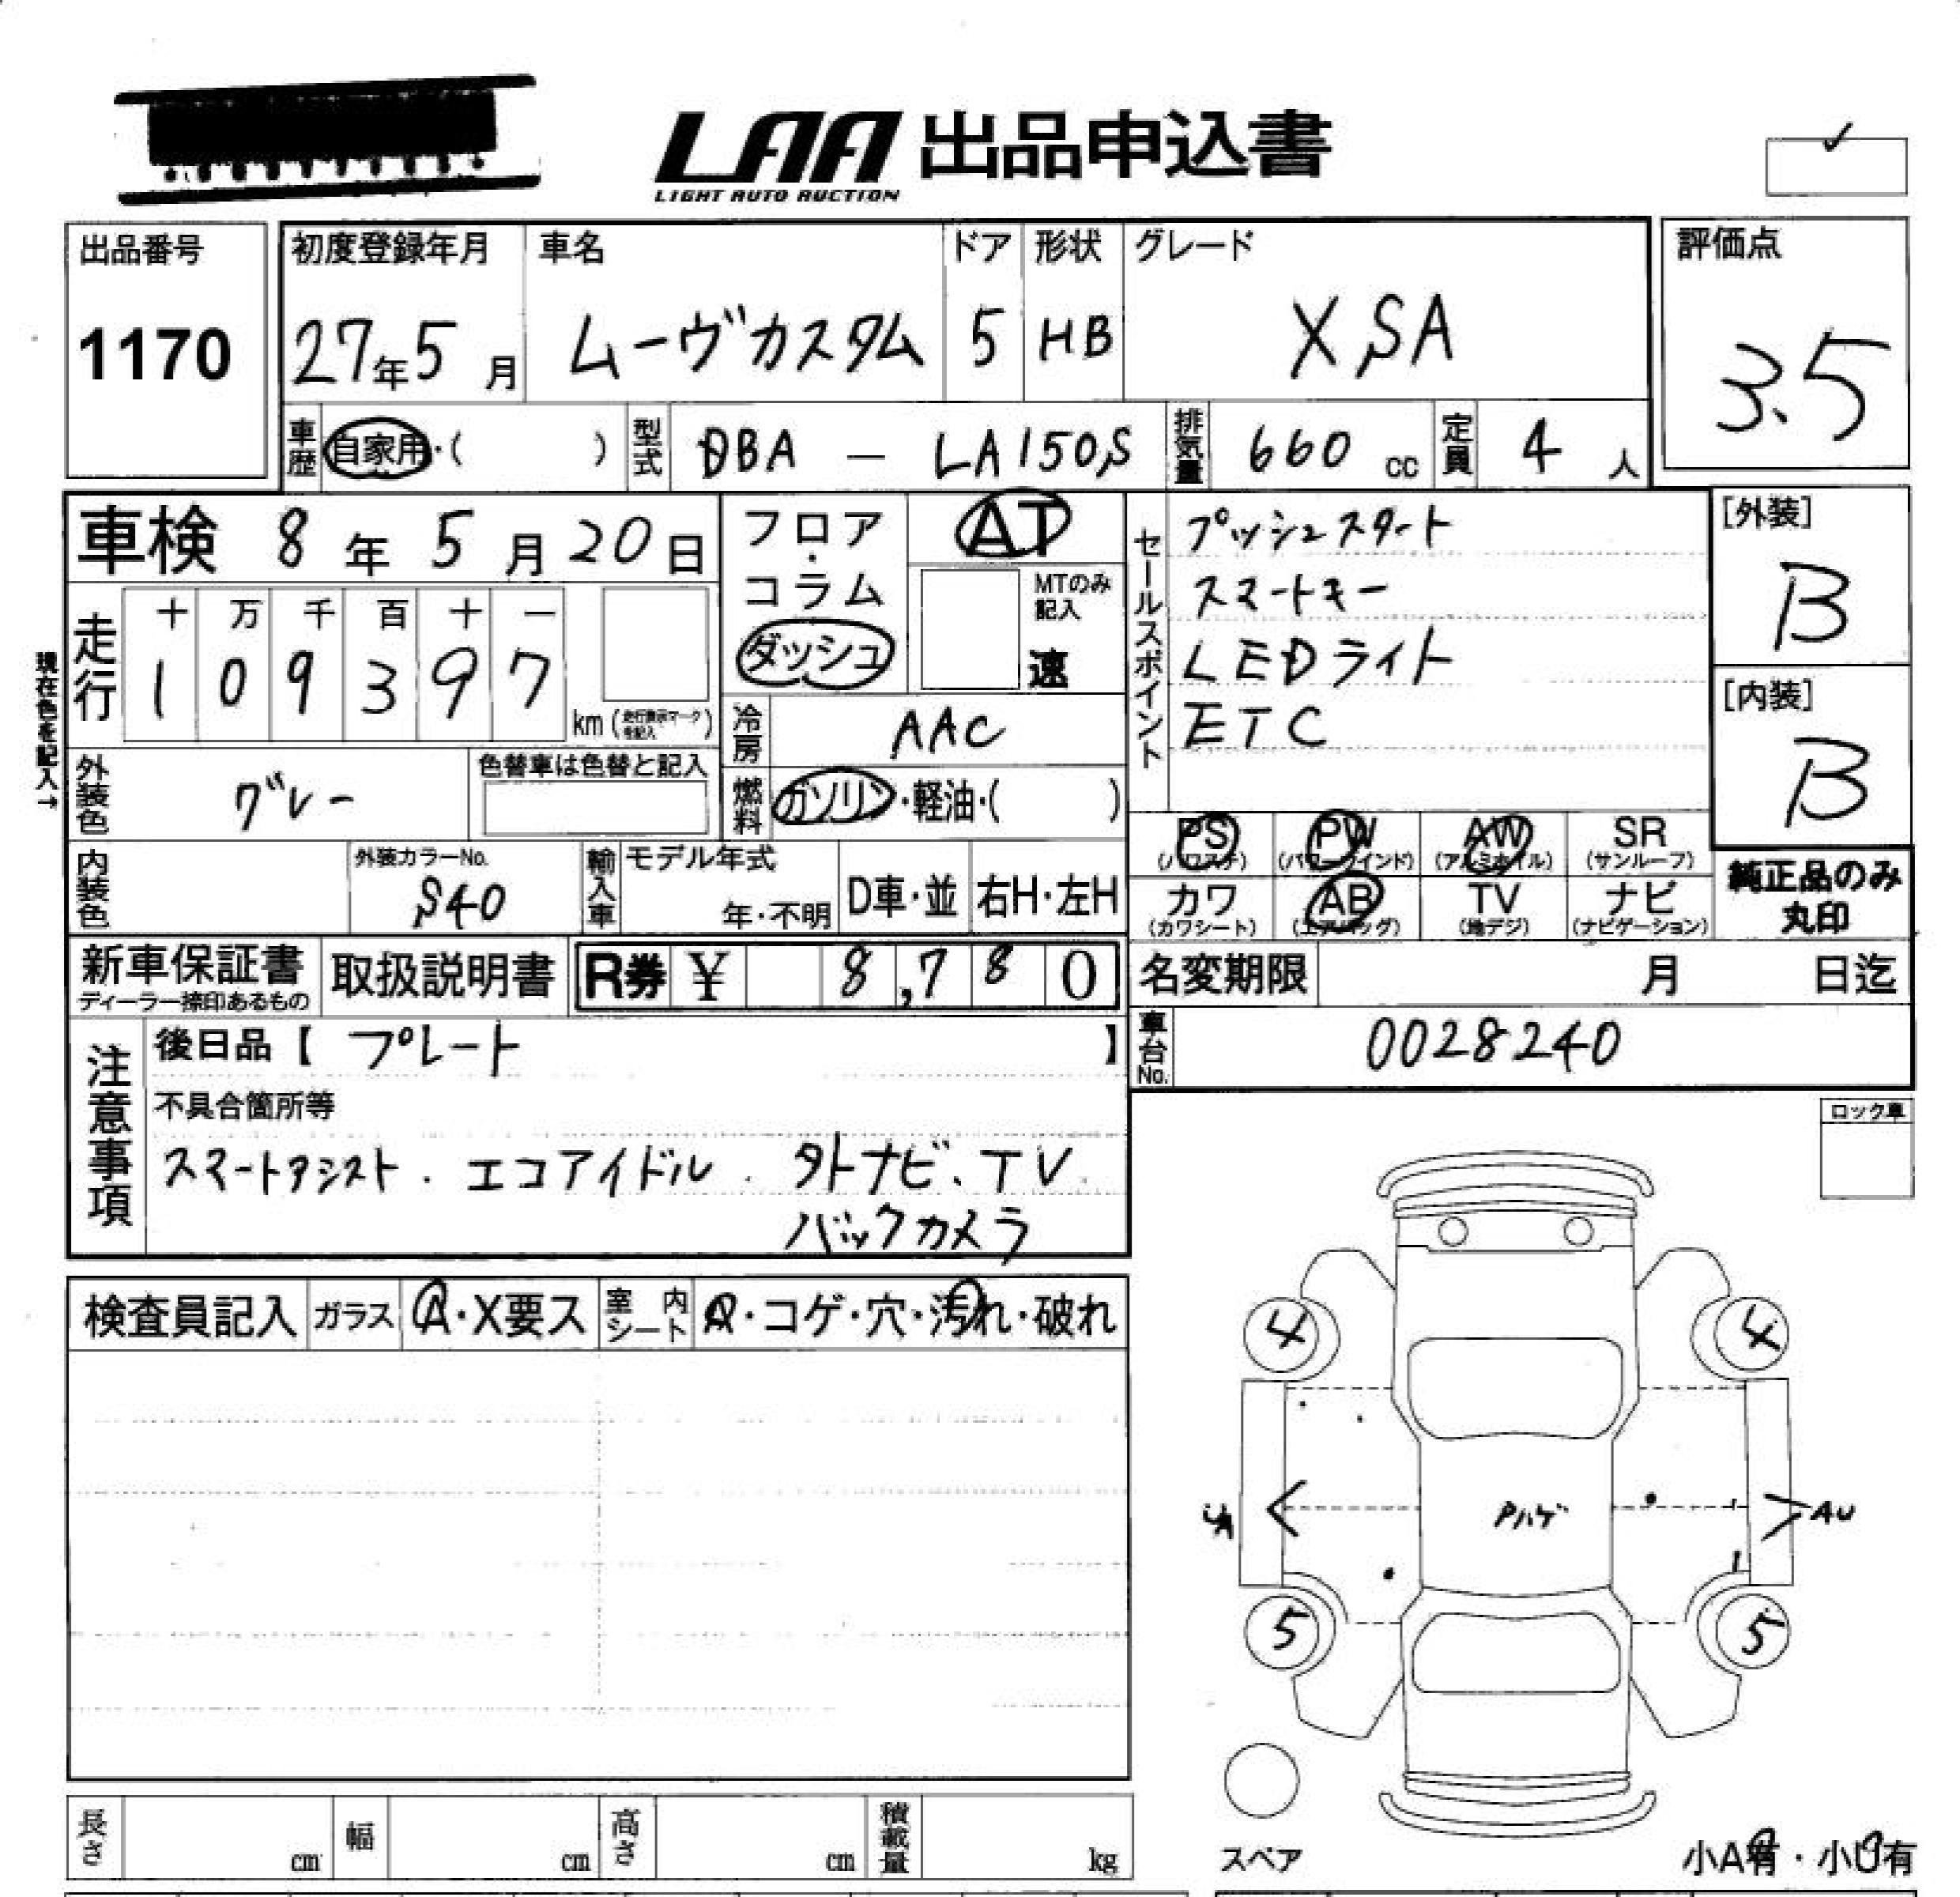 LAA 出品申込書
LIGHT AUTO AUCTION
出品番号
1170
初度登録年月
27年5月
車名
ムーヴカスタム
ドア
5
形状
HB
グレード
X SA
評価点
3.5
車歴
自家用・( )
型式
DBA — LA150S
排気量
660 cc
定員
4 人
車検 8年 5月 20日
フロア・コラム
ダッシュ
AT
MTのみ記入
速
セールスポイント
プッシュスタート
スマートキー
LEDライト
ETC
[外装]
B
[内装]
B
現在色を記入→
走行
十 万 千 百 十 一
1 0 9 3 9 7
km (走行表示マークを記入)
冷房
AAC
外装色
グレー
色替車は色替と記入
燃料
ガソリン・軽油・( )
PS
(パワステ)
PW
(パワーウインド)
AW
(アルミホイル)
SR
(サンルーフ)
カワ
(カワシート)
AB
(エアバッグ)
TV
(地デジ)
ナビ
(ナビゲーション)
純正品のみ
丸印
内装色
外装カラーNo.
S40
輸入車
モデル年式
年・不明
D車・並
右H・左H
新車保証書
ディーラー捺印あるもの
取扱説明書
R券 ¥ 8,780
名変期限 月 日迄
車台No.
0028240
注意事項
後日品【 プレート 】
不具合箇所等
スマートアシスト . エコアイドル . 外ナビ、TV
バックカメラ
ロック車
検査員記入
ガラス
A・X要ス
室内シート
A・コゲ・穴・汚れ・破れ
4
4
Pハゲ
AU
5
5
スペア
小A有・小U有
長さ cm
幅 cm
高さ cm
積載量 kg